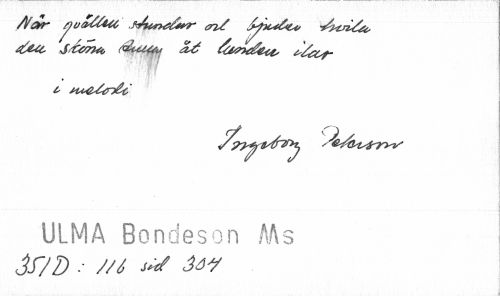 När qvällen stundar och bjuder hvila
den störa åt lunden ilar
i melodi
Ingeborg Peterson
ULMA Bondeson Ms
351D : 116 sid 304